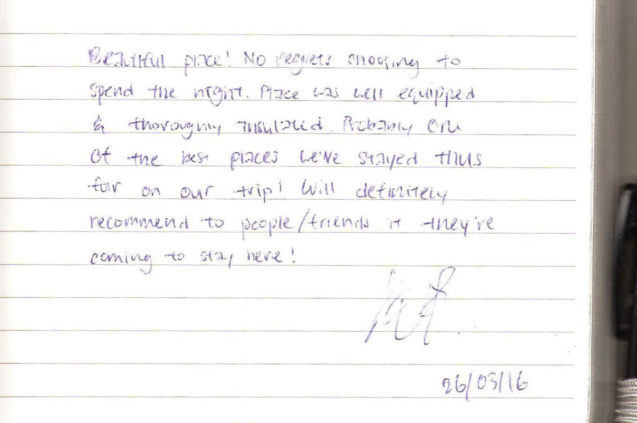 Beautiful place! No regrets choosing to
spend the night. Place was well equipped
& thoroughly insulated. Probably one
of the best places we've stayed thus
far on our trip! Will definitely
recommend to people/friends if they're
coming to stay here!
26/05/16